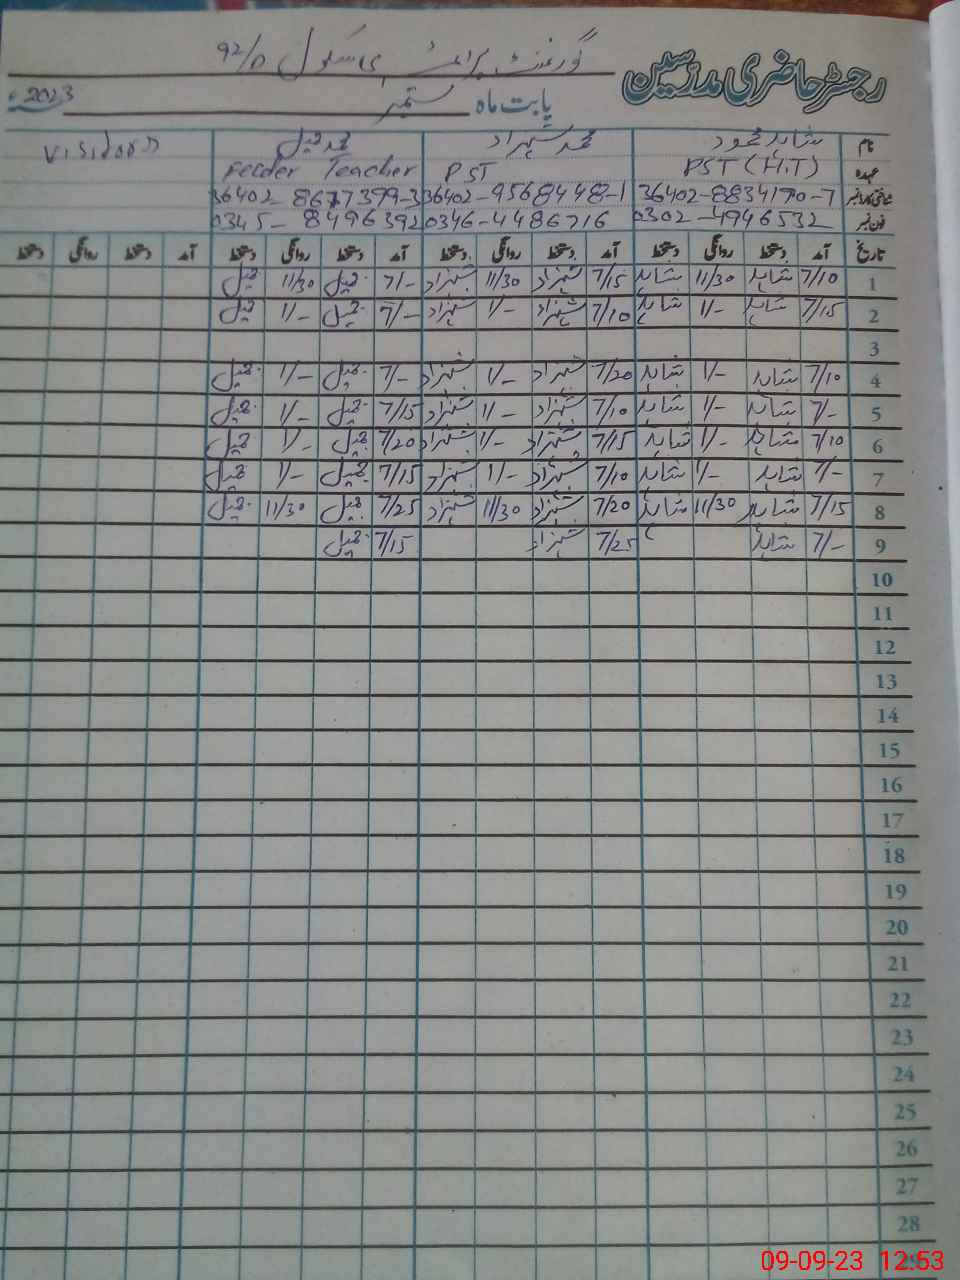 رجسٹر حاضری مدرسین گورنمنٹ پرائمری سکول 92/D
بابت ماہ ستمبر 2023ء
نام شاہد محمود محمد شہزاد محمد جمیل Visitors
عہدہ PST (H.T) PST Feeder Teacher
شناختی کارڈ نمبر 36402-8834170-7 36402-9568448-1 36402-8677399-3
فون نمبر 0302-4946532 0346-4486716 0345-8496392
تاریخ آمد دستخط روانگی دستخط آمد دستخط روانگی دستخط آمد دستخط روانگی دستخط آمد دستخط روانگی دستخط
1 7/10 شاہد 11/30 شاہد 7/15 شہزاد 11/30 شہزاد 7/- جمیل 11/30 جمیل
2 7/15 شاہد 1/- شاہد 7/10 شہزاد 1/- شہزاد 7/- جمیل 1/- جمیل
3
4 7/10 شاہد 1/- شاہد 7/20 شہزاد 1/- شہزاد 7/- جمیل 1/- جمیل
5 7/- شاہد 1/- شاہد 7/10 شہزاد 1/- شہزاد 7/15 جمیل 1/- جمیل
6 7/10 شاہد 1/- شاہد 7/15 شہزاد 1/- شہزاد 7/20 جمیل 1/- جمیل
7 7/- شاہد 1/- شاہد 7/10 شہزاد 1/- شہزاد 7/15 جمیل 1/- جمیل
8 7/15 شاہد 11/30 شاہد 7/20 شہزاد 11/30 شہزاد 7/25 جمیل 11/30 جمیل
9 7/- شاہد 7/25 شہزاد 7/15 جمیل
10
11
12
13
14
15
16
17
18
19
20
21
22
23
24
25
26
27
28
29
09-09-23 12:53